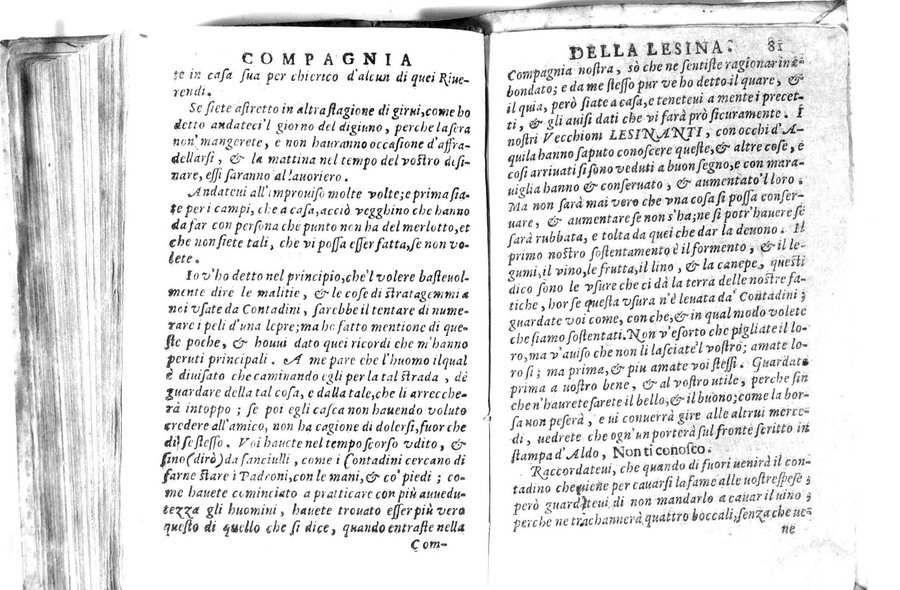 COMPAGNIA
te in casa sua per chierico d'alcun di quei Riue-
rendi.
Se siete astretto in altra stagione di girui, come ho
detto andateci'l giorno del digiuno, perche la sera
non mangerete, e non hauranno occasione d'affra-
dellarsi, & la mattina nel tempo del vostro desi-
nare, essi saranno al lauoriero.
Andateui all'improuiso molte volte; e prima sia-
te per i campi, che a casa, acciò vegghino che hanno
da far con persona che punto non ha del merlotto, et
che non siete tali, che vi possa esser fatta, se non vo-
lete.
Io v'ho detto nel principio, che'l volere basteuol-
mente dire le malitie, & le cose di stratagemmi a
noi vsate da Contadini, sarebbe il tentare di nume-
rare i peli d'una lepre; ma ho fatto mentione di que-
ste poche, & houui dato quei ricordi che m'hanno
peruti principali. A me pare che l'huomo il qual
è diuisato che caminando egli per la tal strada, dè
guardare della tal cosa, e dalla tale, che li arreche-
rà intoppo; se poi egli casca non hauendo voluto
credere all'amico, non ha cagione di dolersi, fuor che
di se stesso. Voi hauete nel tempo scorso vdito, &
sino (dirò) da fanciulli, come i Contadini cercano di
farne stare i Padroni, con le mani, & co' piedi; co-
me hauete cominciato a pratticare con più auuedu-
tezza gli huomini, hauete trouato esser più vero
questo di quello che si dice, quando entraste nella
Com-
DELLA LESINA. 81
Compagnia nostra, sò che ne sentiste ragionar in a-
bondato; e da me stesso pur ve ho detto il quare, &
il quia, però siate a casa, e teneteui a mente i precet-
ti, & gli auisi dati che vi farà prò sicuramente. I
nostri Vecchioni LESINANTI, con occhi d'A-
quila hanno saputo conoscere queste, & altre cose, e
così arriuati si sono veduti a buon segno, e con mara-
uiglia hanno & conseruato, & aumentato'l loro.
Ma non sarà mai vero che vna cosa si possa conser-
uare, & aumentare se non s'ha; ne si potr'hauere se
sarà rubbata, e tolta da quei che dar la deuono. Il
primo nostro sostentamento è il formento, & il le-
gumi, il vino, le frutta, il lino, & la canepe, questi
dico sono le vsure che ci dà la terra delle nostre fa-
tiche, hor se questa vsura n'è leuata da' Contadini;
guardate voi come, con che, & in qual modo volete
che siamo sostentati. Non v'esorto che pigliate il lo-
ro, ma v'auiso che non li lasciate'l vostro; amate lo-
ro sì; ma prima, & piu amate voi stessi. Guardate
prima a uostro bene, & al vostro utile, perche sin
ch'n'haurete sarete il bello, & il buono; come la bor-
sa non peserà, e ui conuerrà gire alle altrui merce-
di, uedrete che ogn'un porterà sul fronte scritto in
stampa d'Aldo, Non ti conosco.
Raccordateui, che quando di fuori uenirà il con-
tadino che uiene per cauarsi la fame alle uostre spese;
però guardateui di non mandarlo a cauar il uino;
perche ne trachannerà quattro boccali, senza che ue-
ne